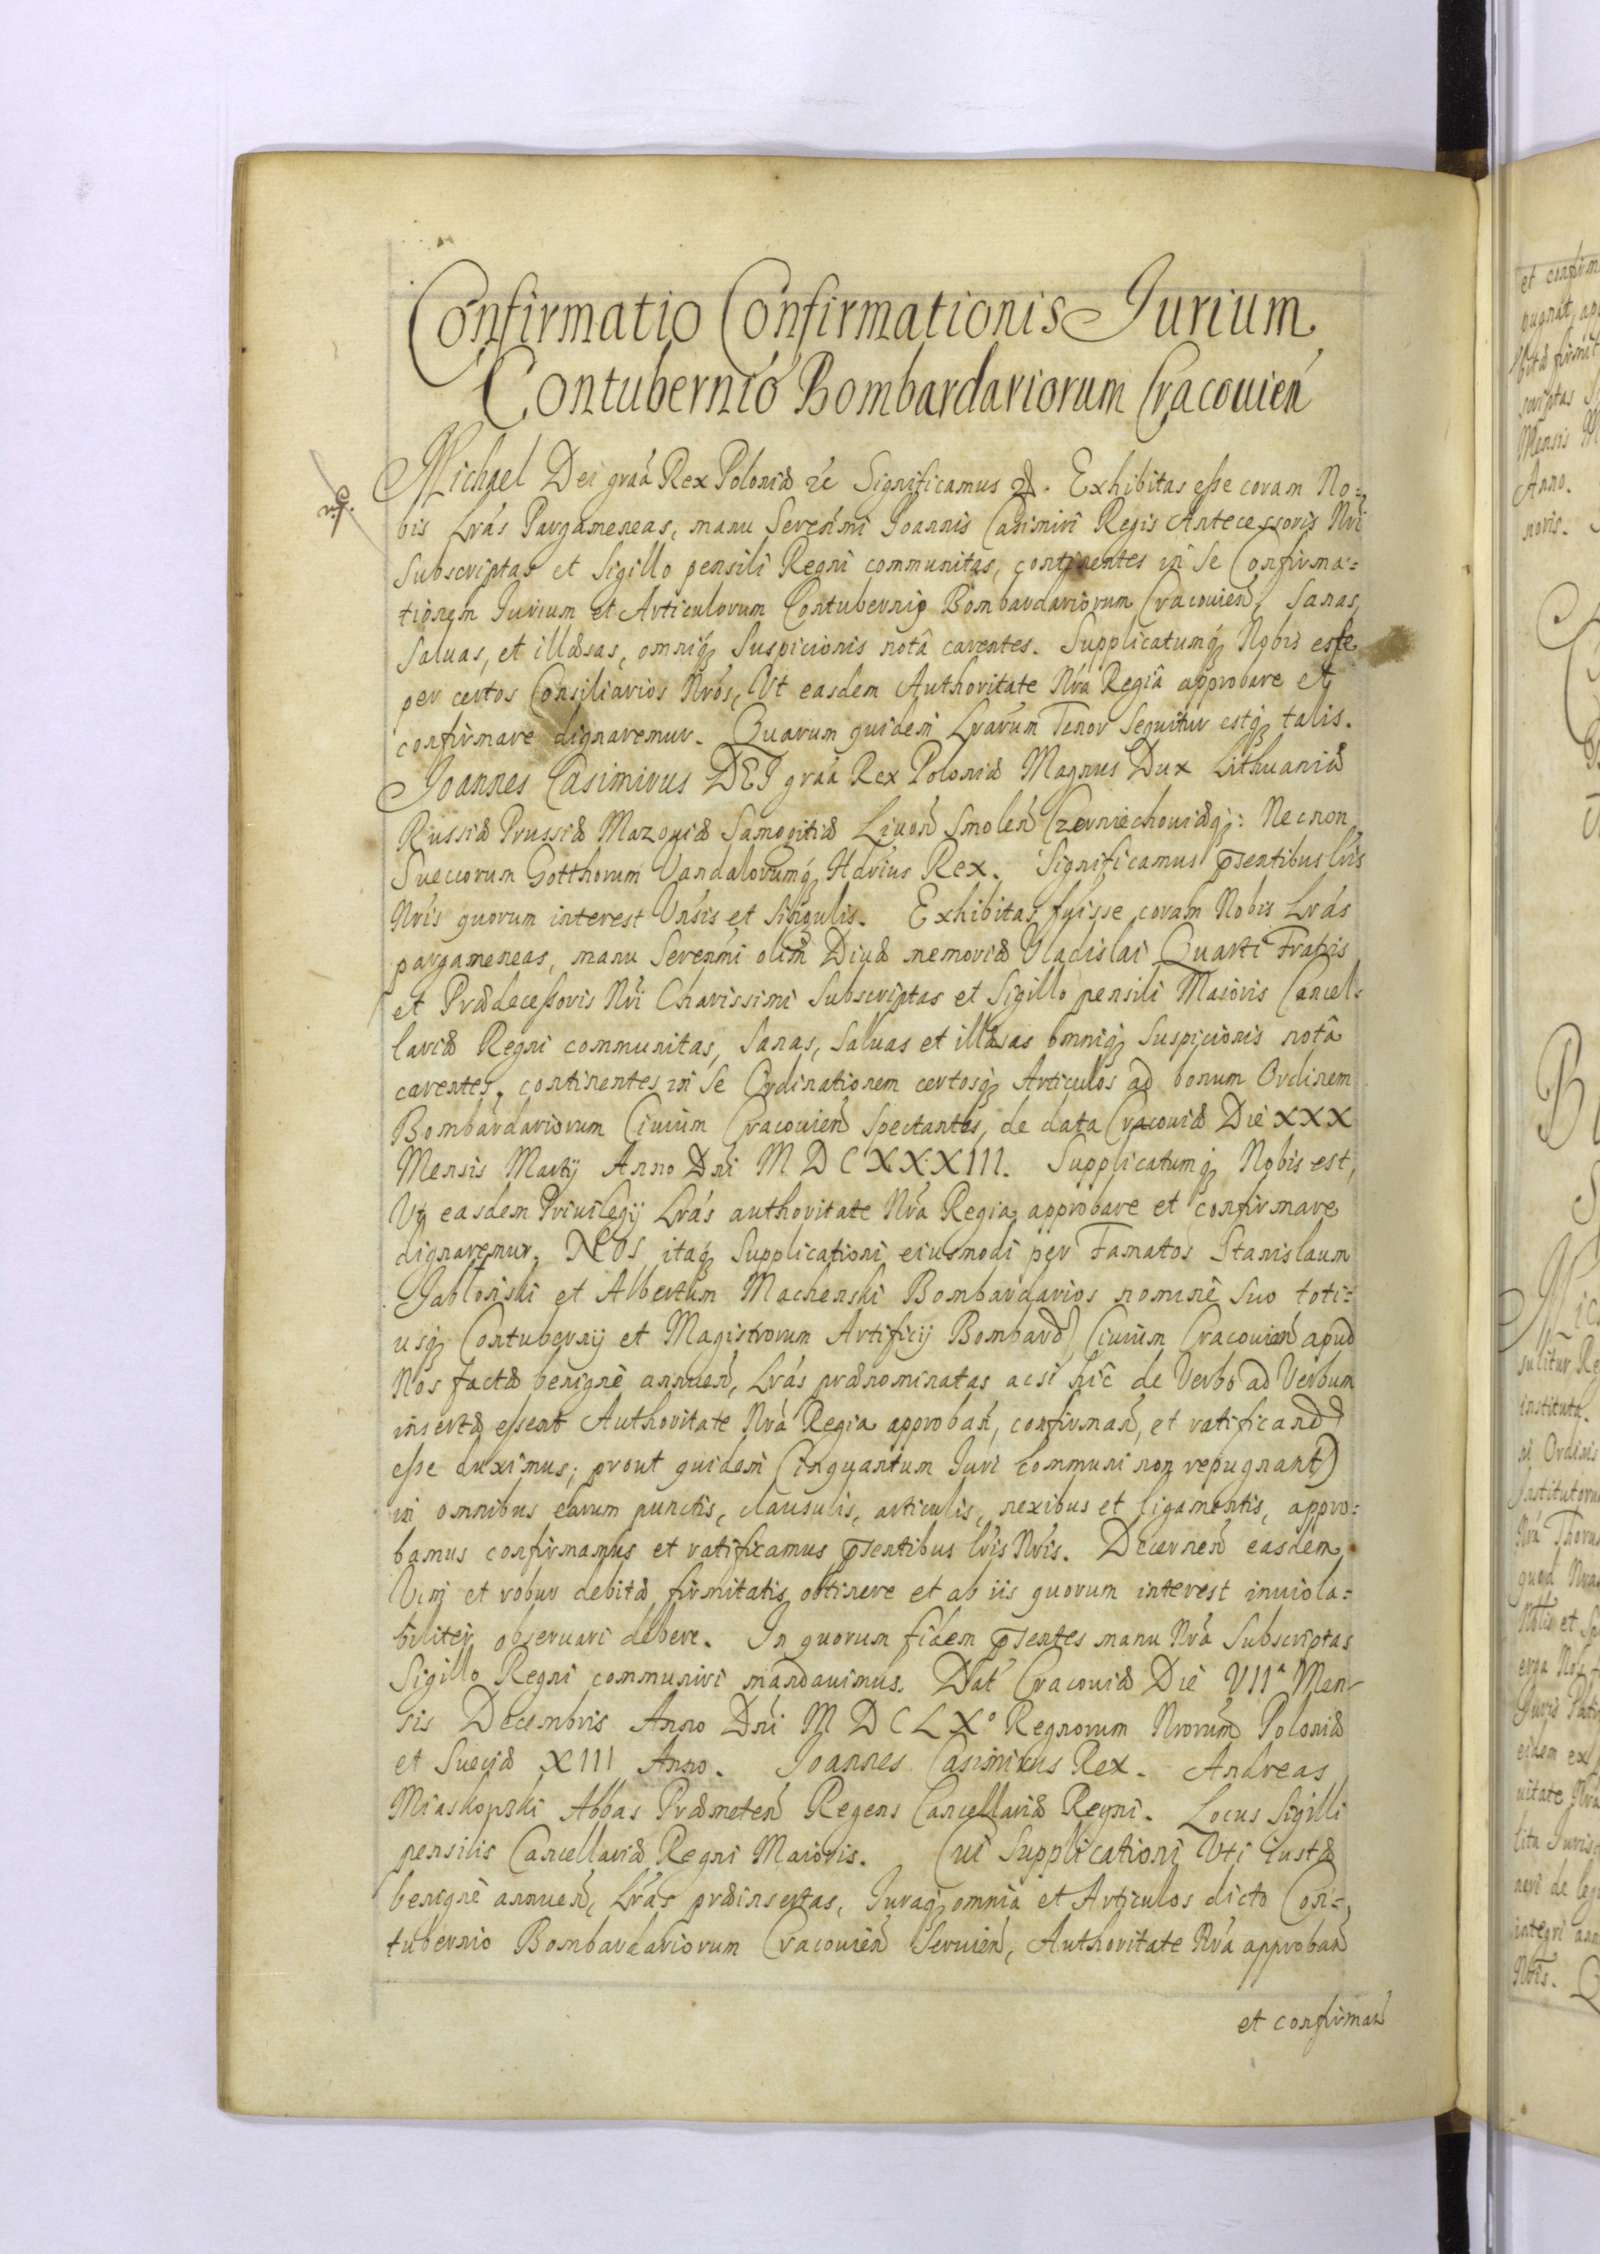 Confirmatio Confirmationis Jurium
Contubernio Bombardariorum Cracouień
Michael Dei graã Rex Poloniæ &c Significamus &. Exhibitas esse coram No=
bis Lrás Pargameneas, manu Sereńmi Joannis Casimiri Regis Antecessoris Nri
Subscriptas et Sigillo pensili Regni communitas, continentes in se Confirma=
tionem Jurium et Articulorum Contubernio Bombardariorum Cracouień, Sanas,
Saluas, et illæsas, omniq3 Suspicionis notâ carentes. Supplicatumq3 Nobis esse
per certos Consiliarios Nrós, Vt easdem Authoritate Nrá Regiâ approbare et
confirmare dignaremur. Quarum quidem Lrarum Tenor sequitur estq3 talis.
Joannes Casimirus DEI graã Rex Poloniæ Magnus Dux Lithuaniæ
Russiæ Prussiæ Mazouiæ Samogitiæ Liuoń Smoleń Czerniechouiæq3: Necnon
Sueccorum Gotthorum Vandalorumq3 Hdrius Rex. Significamus p̃sentibus lris
Nris quorum interest Vńsis et Singulis. Exhibitas fuisse coram Nobis Lrás
pargameneas, manu Sereńmi olim Diuæ memoriæ Vladislai Quarti Fratris
et Prædecessoris Nri Charissimi Subscriptas et Sigillo pensili Maioris Cancel=
lariæ Regni communitas, Sanas, Saluas et illæsas omniq3 Suspicionis notâ
carentes, continentes in se Ordinationem certosq3 Articulos ad bonum Ordinem
Bombardariorum Ciuium Cracouień Spectantes, de data Cracouiæ Die XXX
Mensis Martij Anno Dni MDCXXXIII. Supplicatumq3 Nobis est,
Vt easdem Priuilegij Lrás authoritate Nrá Regia approbare et confirmare
dignaremur. NOS itaq3 Supplicationi eiusmodi per Famatos Stanislaum
Jabłoński et Albertum Machenski Bombardarios nomine suo toti=
usq3 Contubernij et Magistrorum Artificij Bombard Ciuium Cracouień apud
Nos factæ benignè annueń, Lrás prænominatas acsi hîc de Verbo ad Verbum
insertæ essent Authoritate Nrá Regia approbań, confirmań, et ratificand
esse duximus; prout quidem (inquantum Juri communi non repugnant)
in omnibus earum punctis, clausulis, articulis, nexibus et ligamentis, appro=
bamus confirmamus et ratificamus p̃sentibus lris Nris. Decerneń easdem
Vim et robur debitæ firmitatis obtinere et ab iis quorum interest inuiola=
biliter obseruari debere. In quorum fidem p̃sentes manu Nrá Subscriptas
Sigillo Regni communiri mandauimus. Dat Cracouiæ Die VIIª Men=
sis Decembris Anno Dni MDCLXº Regnorum Nrorum Poloniæ
et Sueciæ XIII Anno. Joannes Casimirus Rex. Andreas
Miaskowski Abbas Præmeteń Regens Cancellariæ Regni. Locus Sigilli
pensilis Cancellariæ Regni Maioris. Cui Supplicationi Vti iustæ
benignè annueń, Lrás præinsertas, Juraq3 omnia et Articulos dicto Con=
tubernio Bombardariorum Cracouień Seruień, Authoritate Nrá approbań
et confirmań